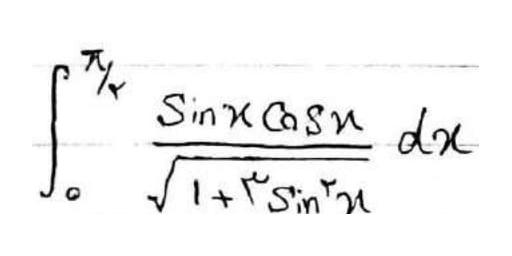 ∫₀^{π/۲} \frac{Sinx Cosx}{\sqrt{1+۳Sin^۲x}} dx